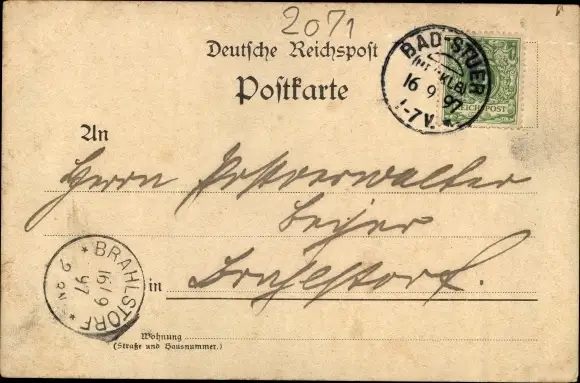 2071
Deutsche Reichspost
Postkarte
BAD-STUER
(MECKLB)
16 9 97
-7V.
REICHSPOST
An
Herrn Postverwalter
in Brahlstorf.
BRAHLSTORF
16/9
97
Wohnung
(Straße und Hausnummer)